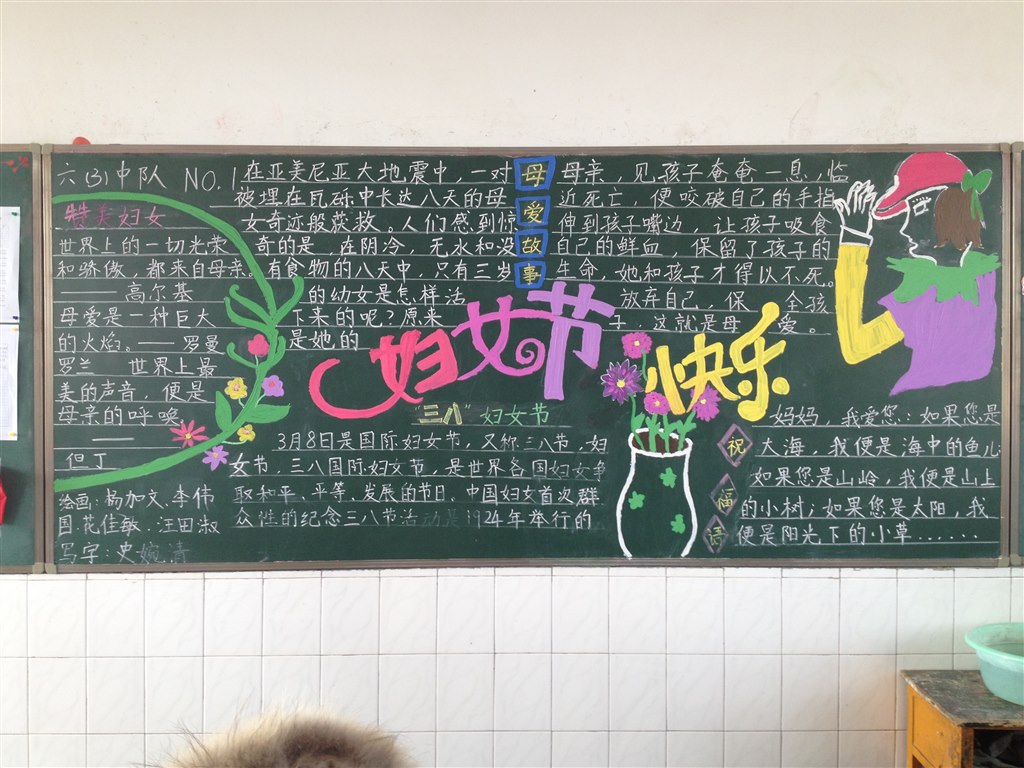 六(3)中队 NO.1
特美妇女
世界上的一切光荣
和骄傲，都来自母亲。
——高尔基
母爱是一种巨大
的火焰。——罗曼
罗兰 世界上最
美的声音，便是
母亲的呼唤
——
但丁
绘画：杨加文.李伟
国.花佳敏.汪田淑
写字：史婉清
母爱故事
在亚美尼亚大地震中，一对
被埋在瓦砾中长达八天的母
女奇迹般获救。人们感到惊
奇的是，在阴冷，无水和没
有食物的八天中，只有三岁
的幼女是怎样活
下来的呢？原来
是她的
母亲，见孩子奄奄一息，临
近死亡，便咬破自己的手指
伸到孩子嘴边，让孩子吸食
自己的鲜血，保留了孩子的
生命。她和孩子才得以不死。
放弃自己，保 全孩
子 这就是母 爱。
妇女节
快乐
"三八"妇女节
3月8日是国际妇女节，又称三八节，妇
女节，三八国际妇女节，是世界各国妇女争
取和平、平等、发展的节日、中国妇女首次群
众性的纪念三八节活动是1924年举行的
祝福语
妈妈，我爱您：如果您是
大海，我便是海中的鱼儿
如果您是山岭，我便是山上
的小树；如果您是太阳，我
便是阳光下的小草......